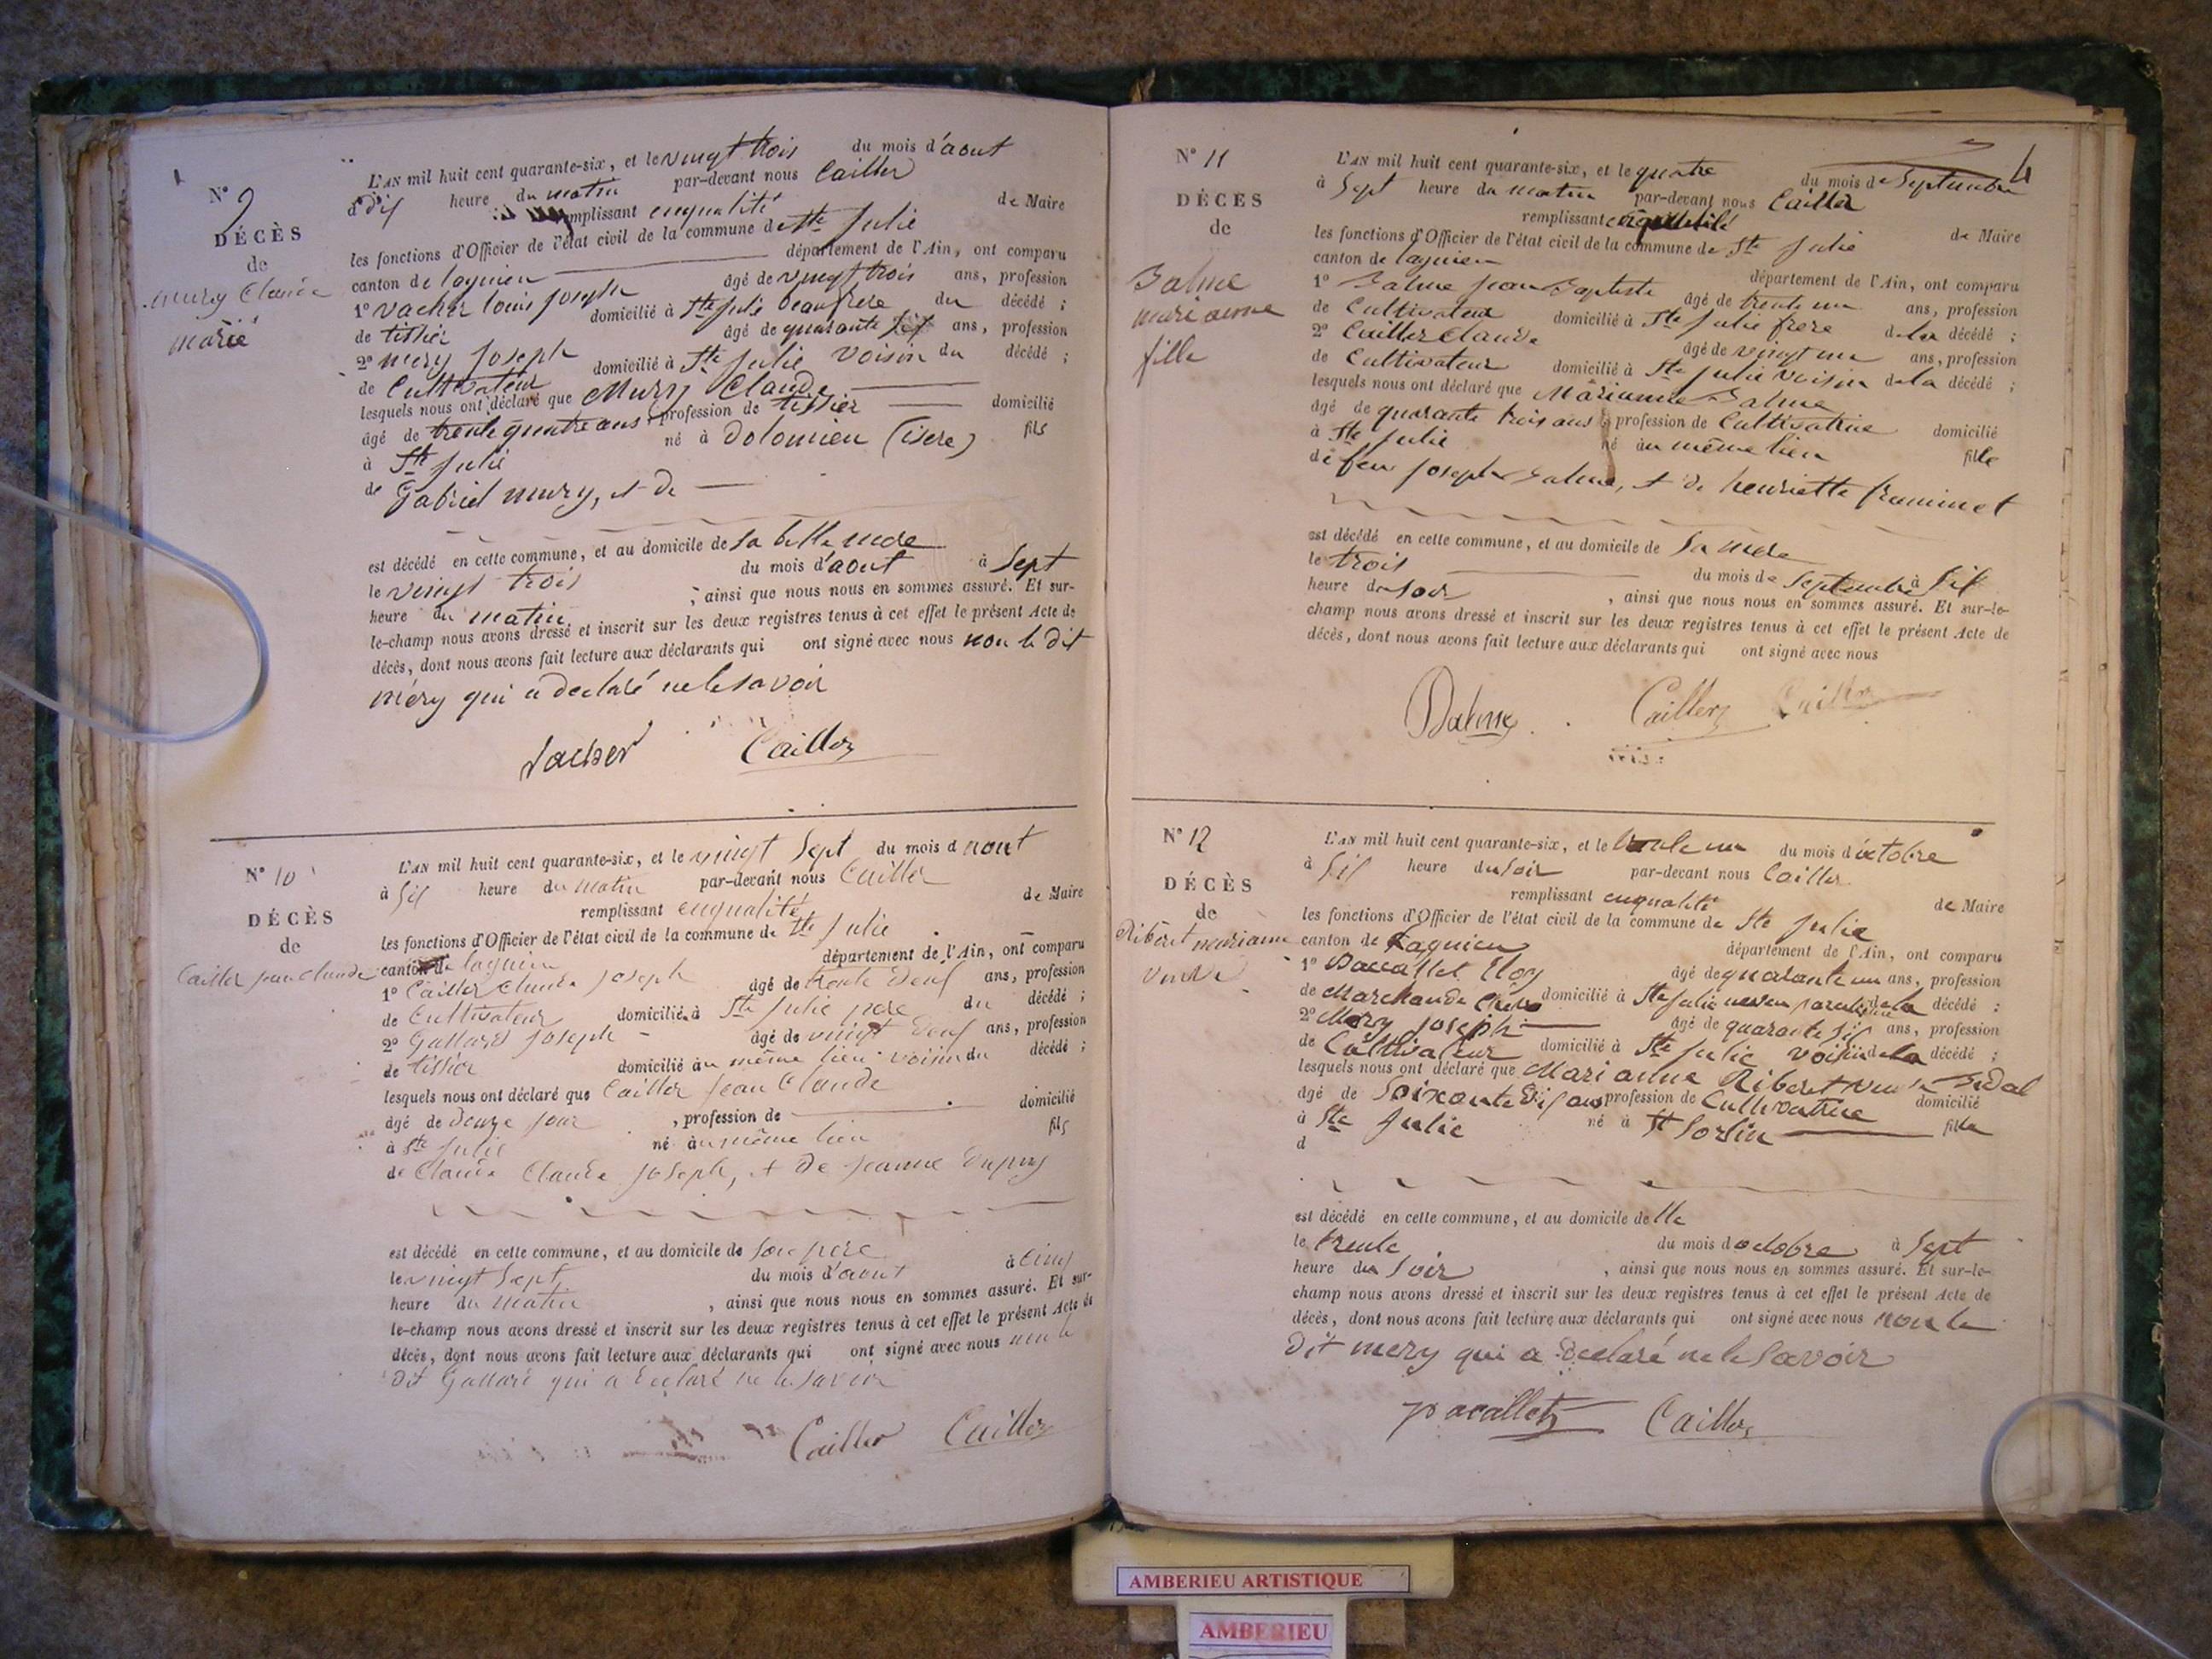 N° 9
DÉCÈS
de
mury Claude
marié
L'AN mil huit cent quarante-six, et le vingt trois du mois d'aout
à dix heure du matin par-devant nous Cailler
remplissant enqualité de Maire
les fonctions d'Officier de l'état civil de la commune de Ste Julie
canton de lagnieu département de l'Ain, ont comparu
1° vacher louis joseph âgé de vingt trois ans, profession
de tissier domicilié à Ste Julie beaufrere du décédé ;
2° mery joseph âgé de quarante six ans, profession
de Cultivateur domicilié à Ste Julie voisin du décédé ;
lesquels nous ont déclaré que Mury Claude
âgé de trente quatre ans, profession de tissier domicilié
à Ste Julie né à dolomieu (isere) fils
de Gabriel mury, et de
est décédé en cette commune, et au domicile de sa belle mere
le vingt trois du mois d'aout à sept
heure du matin, ainsi que nous nous en sommes assuré. Et sur-
le-champ nous avons dressé et inscrit sur les deux registres tenus à cet effet le présent Acte de
décès, dont nous avons fait lecture aux déclarants qui ont signé avec nous non le dit
méry qui a declaré ne le savoir
vacher Cailler
N° 10
DÉCÈS
de
Cailler jean claude
L'AN mil huit cent quarante-six, et le vingt sept du mois d aout
à six heure du matin par-devant nous Cailler
remplissant enqualité de Maire
les fonctions d'Officier de l'état civil de la commune de Ste Julie
canton de lagnieu département de l'Ain, ont comparu
1° Cailler claude joseph âgé de trente deux ans, profession
de Cultivateur domicilié à Ste Julie pere du décédé ;
2° Gallaré joseph âgé de vingt deux ans, profession
de tissier domicilié au même lieu voisin du décédé ;
lesquels nous ont déclaré que Cailler jean Claude
âgé de douze jour, profession de domicilié
à Ste Julie né au même lieu fils
de Claude Claude joseph, et de jeanne Dupuy
est décédé en cette commune, et au domicile de son pere
le vingt sept du mois d'aout à cinq
heure du matin, ainsi que nous nous en sommes assuré. Et sur-
le-champ nous avons dressé et inscrit sur les deux registres tenus à cet effet le présent Acte de
décès, dont nous avons fait lecture aux déclarants qui ont signé avec nous non le
dit Gallaré qui a declaré ne le savoir
Cailler Cailler
4
N° 11
DÉCÈS
de
Balme
marianne
fille
L'AN mil huit cent quarante-six, et le quatre du mois de Septembre
à sept heure du matin par-devant nous Cailler
remplissant enqualité de Maire
les fonctions d'Officier de l'état civil de la commune de Ste Julie
canton de lagnieu département de l'Ain, ont comparu
1° Balme jean Baptiste âgé de trente un ans, profession
de Cultivateur domicilié à Ste Julie frere de la décédé ;
2° Cailler Claude âgé de vingt un ans, profession
de Cultivateur domicilié à Ste Julie voisin de la décédé ;
lesquels nous ont déclaré que Marianne Balme
âgé de quarante trois ans, profession de Cultivatrice domicilié
à Ste Julie né au même lieu fille
de feu joseph Balme, et de henriette freminet
est décédé en cette commune, et au domicile de Sa mere
le trois du mois de Septembre à six
heure du soir, ainsi que nous nous en sommes assuré. Et sur-le-
champ nous avons dressé et inscrit sur les deux registres tenus à cet effet le présent Acte de
décès, dont nous avons fait lecture aux déclarants qui ont signé avec nous
Balme Cailler Cailler
N° 12
DÉCÈS
de
Riberet marianne
veuve
L'AN mil huit cent quarante-six, et le trente un du mois d'octobre
à six heure du soir par-devant nous Cailler
remplissant enqualité de Maire
les fonctions d'Officier de l'état civil de la commune de Ste Julie
canton de Lagnieu département de l'Ain, ont comparu
1° Pacallet Eloy âgé de quarante un ans, profession
de Marchand domicilié à Ste Julie neveu de la décédé ;
2° Mery joseph âgé de quarante six ans, profession
de Cultivateur domicilié à Ste Julie voisin de la décédé ;
lesquels nous ont déclaré que Marianne Riberet veuve
âgé de soixante dix ans profession de Cultivatrice domicilié
à Ste Julie né à St Sorlin fille
d
est décédé en cette commune, et au domicile de lle
le trente du mois d octobre à sept
heure du soir, ainsi que nous nous en sommes assuré. Et sur-le-
champ nous avons dressé et inscrit sur les deux registres tenus à cet effet le présent Acte de
décès, dont nous avons fait lecture aux déclarants qui ont signé avec nous non le
dit mery qui a declaré ne le savoir
pacallet Cailler
AMBERIEU ARTISTIQUE
AMBERIEU